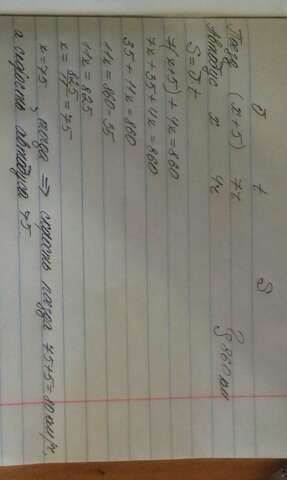 v t S
Поезд (x+5) 7ч
Автобус x 4ч } 860 км
S = v t
7(x+5) + 4x = 860
7x + 35 + 4x = 860
35 + 11x = 860
11x = 860 - 35
11x = 825
x = 825/11 = 75
x = 75, тогда ⇒ скорость поезда 75+5 = 80 км/ч,
а скорость автобуса 75.